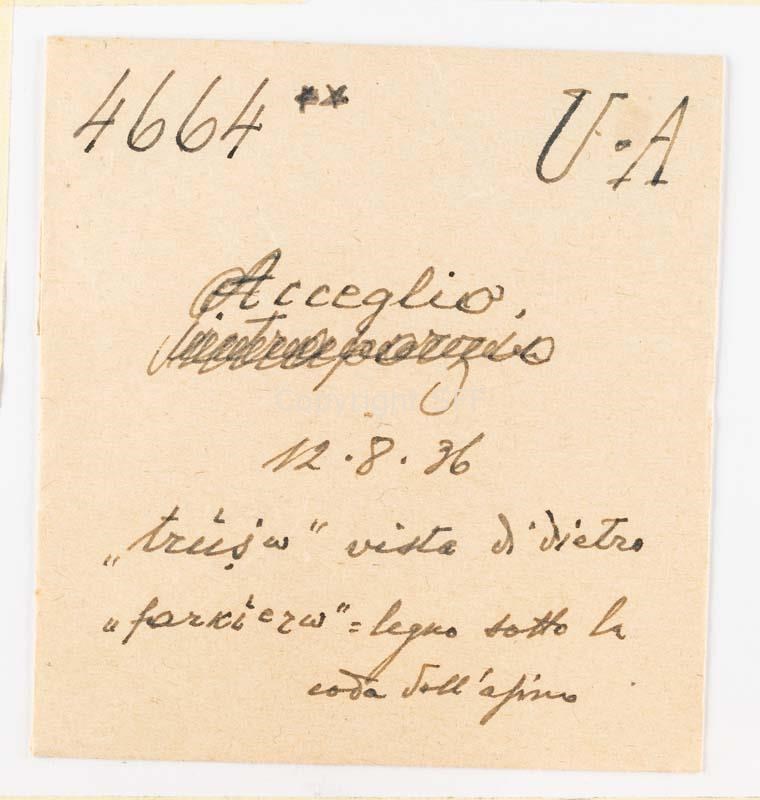 4664 ** U·A
Acceglio,
12·8·36
„trüṣω" vista di dietro
„farkierω" = legno sotto la
coda dell'asino